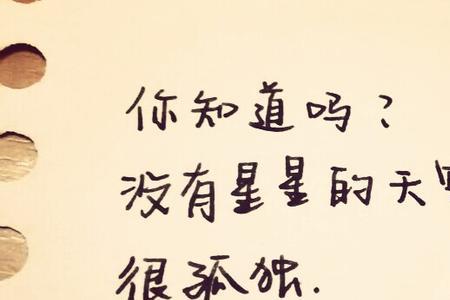 你知道吗？
没有星星的天
很孤独.